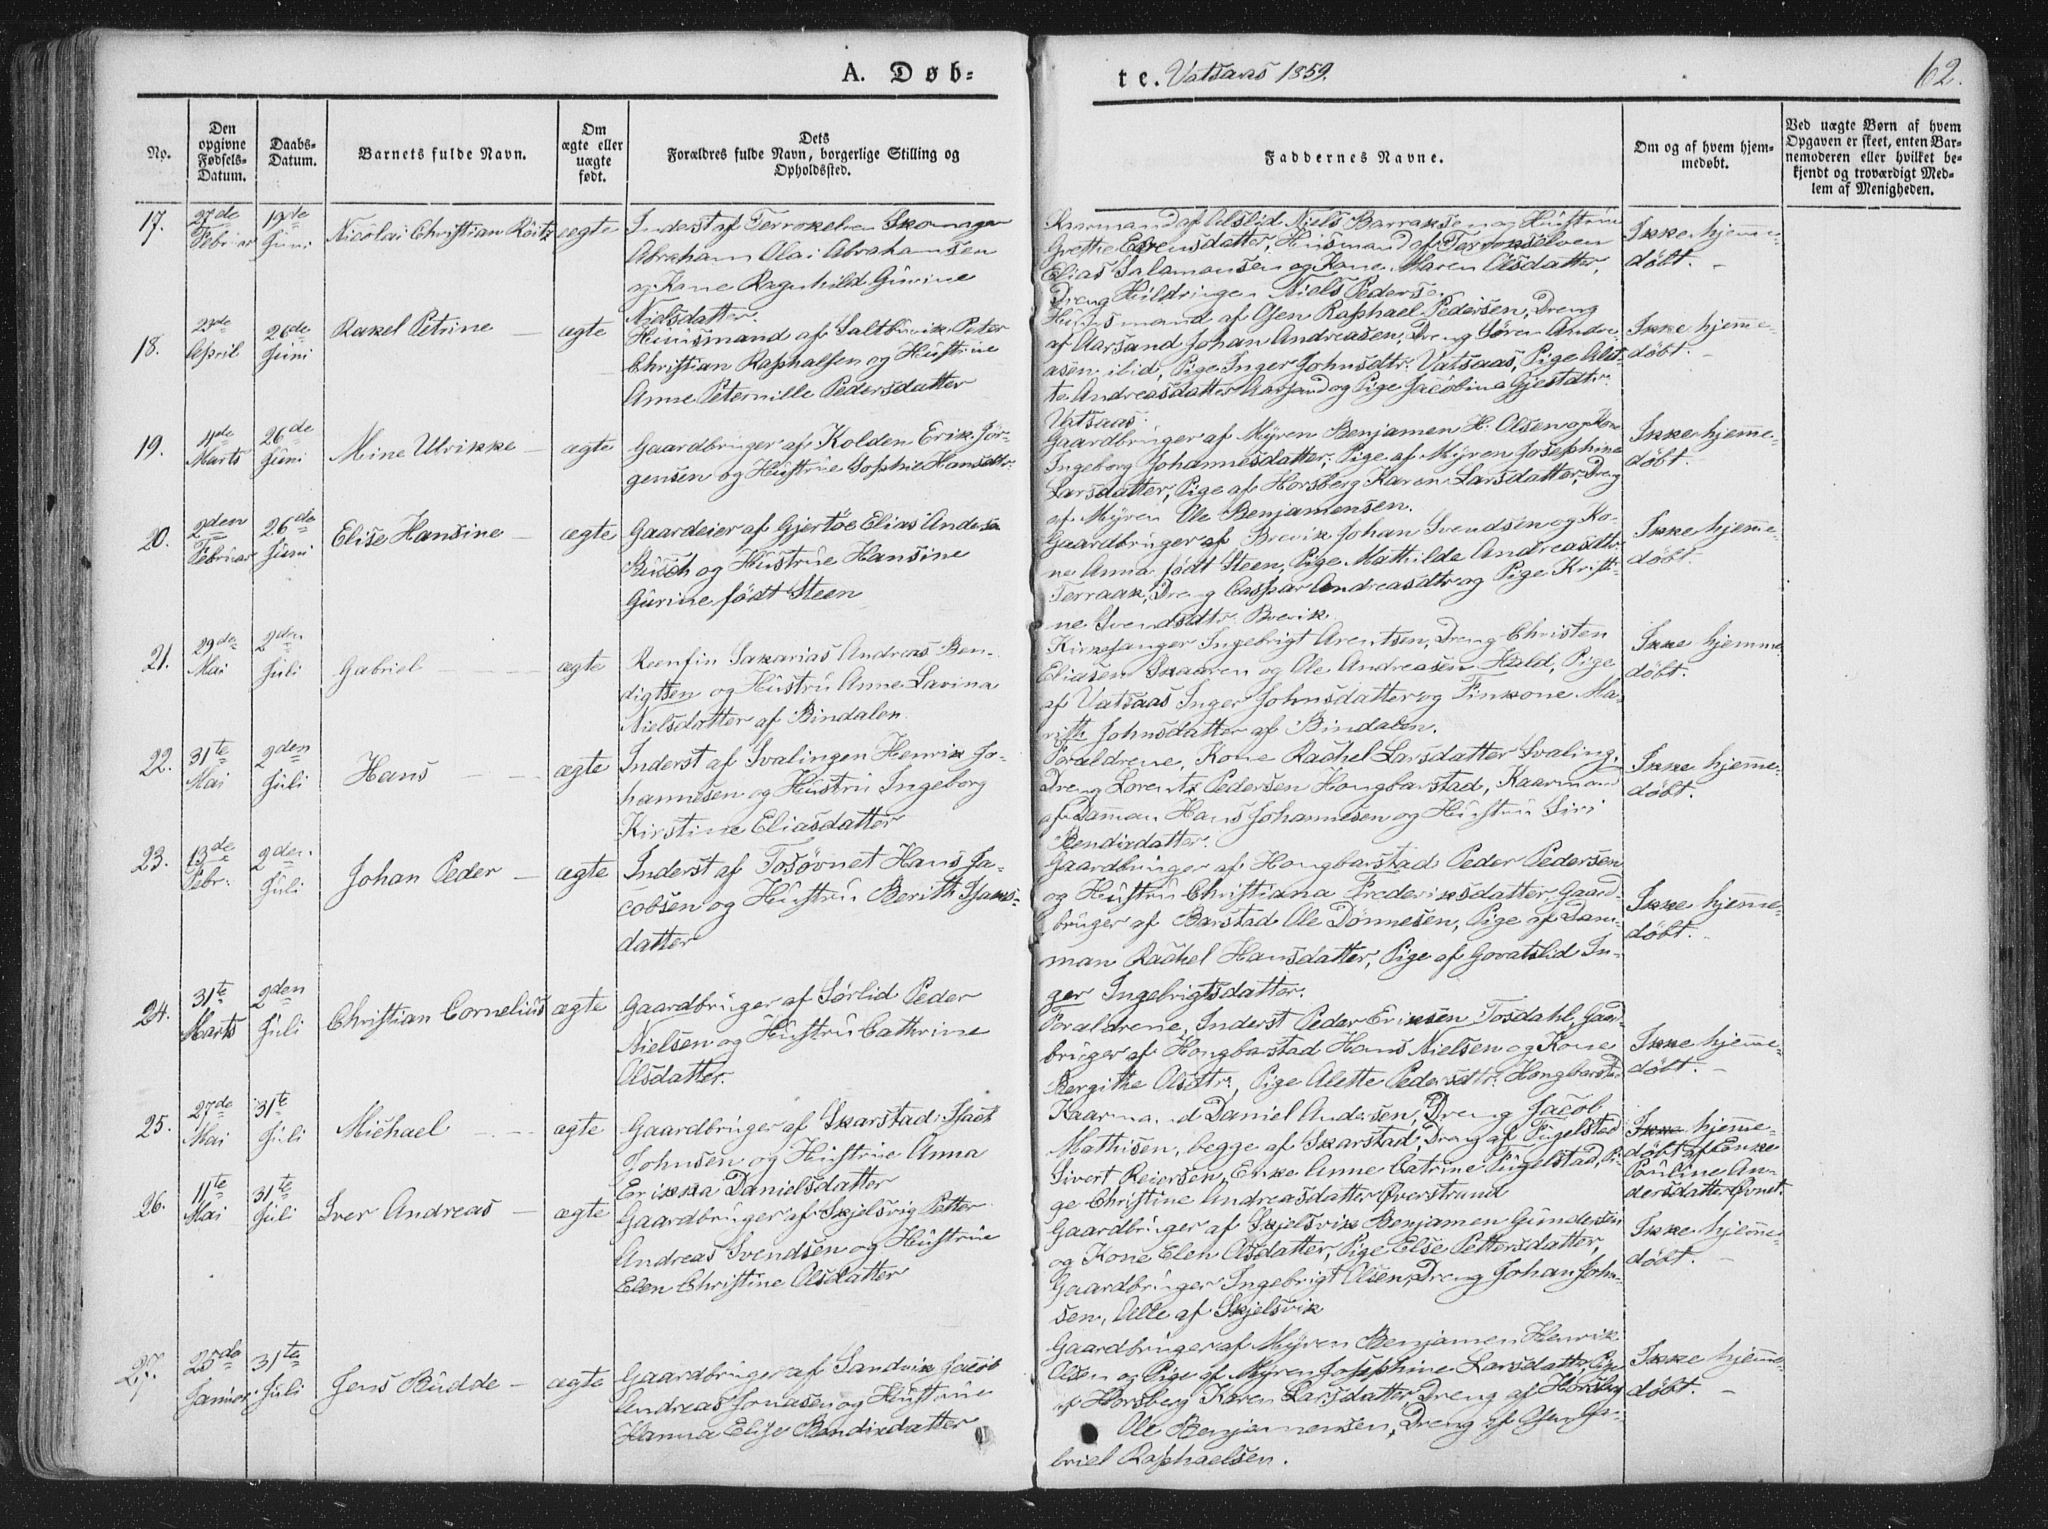 A. Døb-
te. Vatsaas 1859.
62.
No.
Den opgivne Fødsels-Datum.
Daabs-Datum.
Barnets fulde Navn.
Om ægte eller uægte født.
Dets Forældres fulde Navn, borgerlige Stilling og Opholdssted.
Faddernes Navne.
Om og af hvem hjem-medøbt.
Ved uægte Børn af hvem Opgaven er skeet, enten Bar-nemoderen eller hvilket be-kjendt og troværdigt Med-lem af Menigheden.
17. 27de Februar 19de Juni Nicolai Christian ægte
Inderst af Skomager
Abraham Olai Abrahamsen
og Kone Ragnhild Gurine
Nielsdatter.
Kaarmand af Niels og Hustrue
Grethe Husmand af
Elias Salamonsen og Kone Maren Olsdatter,
Dreng Niels Pederse
Ikke hjemme-
døbt.
18. 23de April 26de Juni Rakel Petrine ægte
Huusmand af Saltbuvik Peter
Christian Raphalsen og Hustrue
Anne Peternille Pedersdatter
Huusmand af Osen Raphael Pedersen, Dreng
af Aarsand Johan Andreasen, Dreng Søren Andre-
asen ibid, Pige Inger Johnsdtr. Vatsaas, Pige
Andreasdatter Aarsand og Pige Jacobina Gjestdtr.
Vatsaas.
Ikke hjemme-
døbt.
19. 4de Marts 26de Juni Mine Ulrikke ægte
Gaardbruger af Kolden Erik Jør-
gensen og Hustrue Sophie Hansdtr.
Gaardbruger af Myren Benjamen H. Olsen og Kone
Ingeborg Johannesdatter, Pige af Myren Josephine
Larsdatter, Pige af Horsberg Karen Larsdatter, Dreng
af Myren Ole Benjamensen.
Ikke hjemme-
døbt.
20. 2den Februar 26de Juni Elise Hansine ægte
Gaardeier af Gjertøe Elias Anders
Busch og Hustrue Hansine
Gurine født Steen
Gaardbruger af Brevik Johan Svendsen og Ko-
ne Anna født Steen, Pige Mathilde Andreasdtr.
Terraak, Dreng Caspar Andreasdtr og Pige Kristi-
ne Svendsdtr. Brevik
Ikke hjemme-
døbt.
21. 29de Mai 2den Juli Gabriel ægte
Reenfin Sakarias Andreas Ben-
digtsen og Hustru Anne Lavina
Nielsdatter af Bindalen
Kirkesanger Ingebrigt Arentsen, Dreng Christen
Eliasen Skaaren og Ole Andreasen Hald, Pige
af Vatsaas Inger Johnsdatter og Finkone Ma-
rithe Johnsdatter af Bindalen.
Ikke hjemme-
døbt.
22. 31te Mai 2den Juli Hans ægte
Inderst af Svalingen Henrik Jo-
hannesen og Hustru Ingeborg
Kirstine Eliasdatter
Foraldrene, Kone Rachel Larsdatter Svaling,
Dreng Lorents Pedersen Hongbarstad, Kaarmand
af Damman Hans Johannesen og Hustru Siri
Bendixdatter.
Ikke hjemme-
døbt.
23. 13de Febr. 2den Juli Johan Peder ægte
Inderst af Tosøvnet Hans Ja-
cobsen og Hustru Berith Isaks-
datter
Gaardbruger af Hongbarstad Peder Pedersen
og Hustru Christiana Frederiksdatter, Gaard-
bruger af Barstad Ole Dønnesen, Pige af Dam-
man Rachel Hansdatter, Pige af Govatslid In-
ger Ingebrigtsdatter.
Ikke hjemme-
døbt.
24. 31te Marts 2den Juli Christian Cornelius ægte
Gaardbruger af Sørlid Peder
Nielsen og Hustru Cathrine
Olsdatter.
Foraldrene, Inderst Peder Eriksen Tosdahl, Gaard-
bruger af Hongbarstad Hans Nielsen og Kone
Bergithe Olsdtr., Pige Alette Pedersdtr. Hongbarstad
Ikke hjemme-
døbt.
25. 27de Mai 31te Juli Michael ægte
Gaardbruger af Skarstad Isach
Johnsen og Hustrue Anna
Erikka Danielsdatter
Kaarmand Daniel Andersen, Dreng Jacob
Mathisen, begge af Skarstad, Dreng af Fuglstad
Sivert Reiersen, Enke Anne Catrine Fuglstad, Pi-
ge Christine Andreasdatter Øverstrand
Ikke hjemme-
døbt af Enke
Pauline An-
dersdatter Øvnet.
26. 11te Mai 31te Juli Iver Andreas ægte
Gaardbruger af Skjelsvig Petter
Andreas Svendsen og Hustrue
Elen Christine Olsdatter
Gaardbruger af Skjelsvik Benjamen Gundersen
og Kone Elen Olsdatter, Pige Else Pettersdatter,
Gaardbruger Ingebrigt Olsen, Dreng Johan John-
sen, Alle af Skjelsvik
Ikke hjemme-
døbt.
27. 25de Januar 31te Juli Jens Budde ægte
Gaardbruger af Sandvik Jacob
Andreas Jonasen og Hustrue
Hanna Elise Bendixdatter
Gaardbruger af Myren Benjamen Henrik
Olsen og Pige af Myren Josephine Larsdatter, Pige
af Horsberg Karen Larsdatter, Dreng af Horsberg
Ole Benjamensen, Dreng af Osen Ga-
briel Raphaelsen.
Ikke hjemme-
døbt.